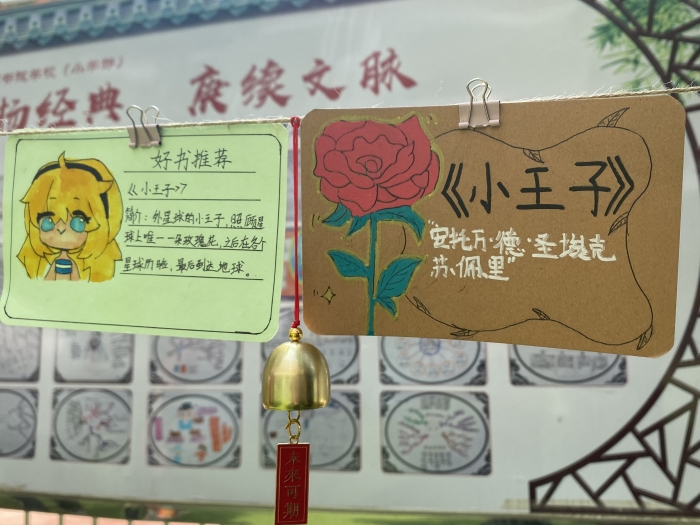 庚续文脉
经典
好书推荐
《小王子》
简介：外星球的小王子，照顾星
球上唯一一朵玫瑰花，之后在各个
星球历险，最后到达地球。
《小王子》
"安托万·德·圣埃克
苏佩里"
未来可期